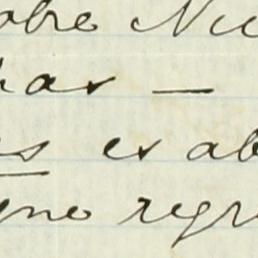 obre Nu
has —
es es ab
gno regr